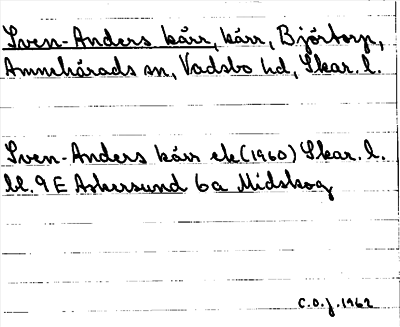 Sven-Anders kärr, kärr, Björtorp,
Amnehärads sn, Vadsbo hd, Skar. l.
Sven-Anders kärr ek (1960) Skar. l.
bl. 9 E Askersund 6a Midskog
C.O.J. 1962